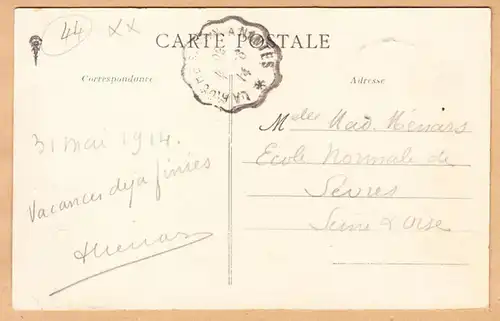 44 XX
CARTE POSTALE
A NANTES *
Correspondance
Adresse
31 mai 1914.
Vacances deja finies
Melle Mad. Ménars
Ecole Normale de
Sèvres
Seine & Oise